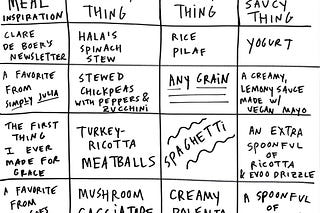 MEAL
INSPIRATION
THING
THING
SAUCY
THING
CLARE
DE BOER'S
NEWSLETTER
HALA'S
SPINACH
STEW
RICE
PILAF
YOGURT
A FAVORITE
FROM
SIMPLY JULIA
STEWED
CHICKPEAS
WITH PEPPERS &
ZUCCHINI
ANY GRAIN
A CREAMY,
LEMONY SAUCE
MADE W/
VEGAN MAYO
THE FIRST
THING
I EVER
MADE FOR
GRACE
TURKEY-
RICOTTA
MEATBALLS
SPAGHETTI
AN EXTRA
SPOONFUL
OF
RICOTTA
& EVOO DRIZZLE
A FAVORITE
FROM
MUSHROOM
CREAMY
A SPOONFUL
OF